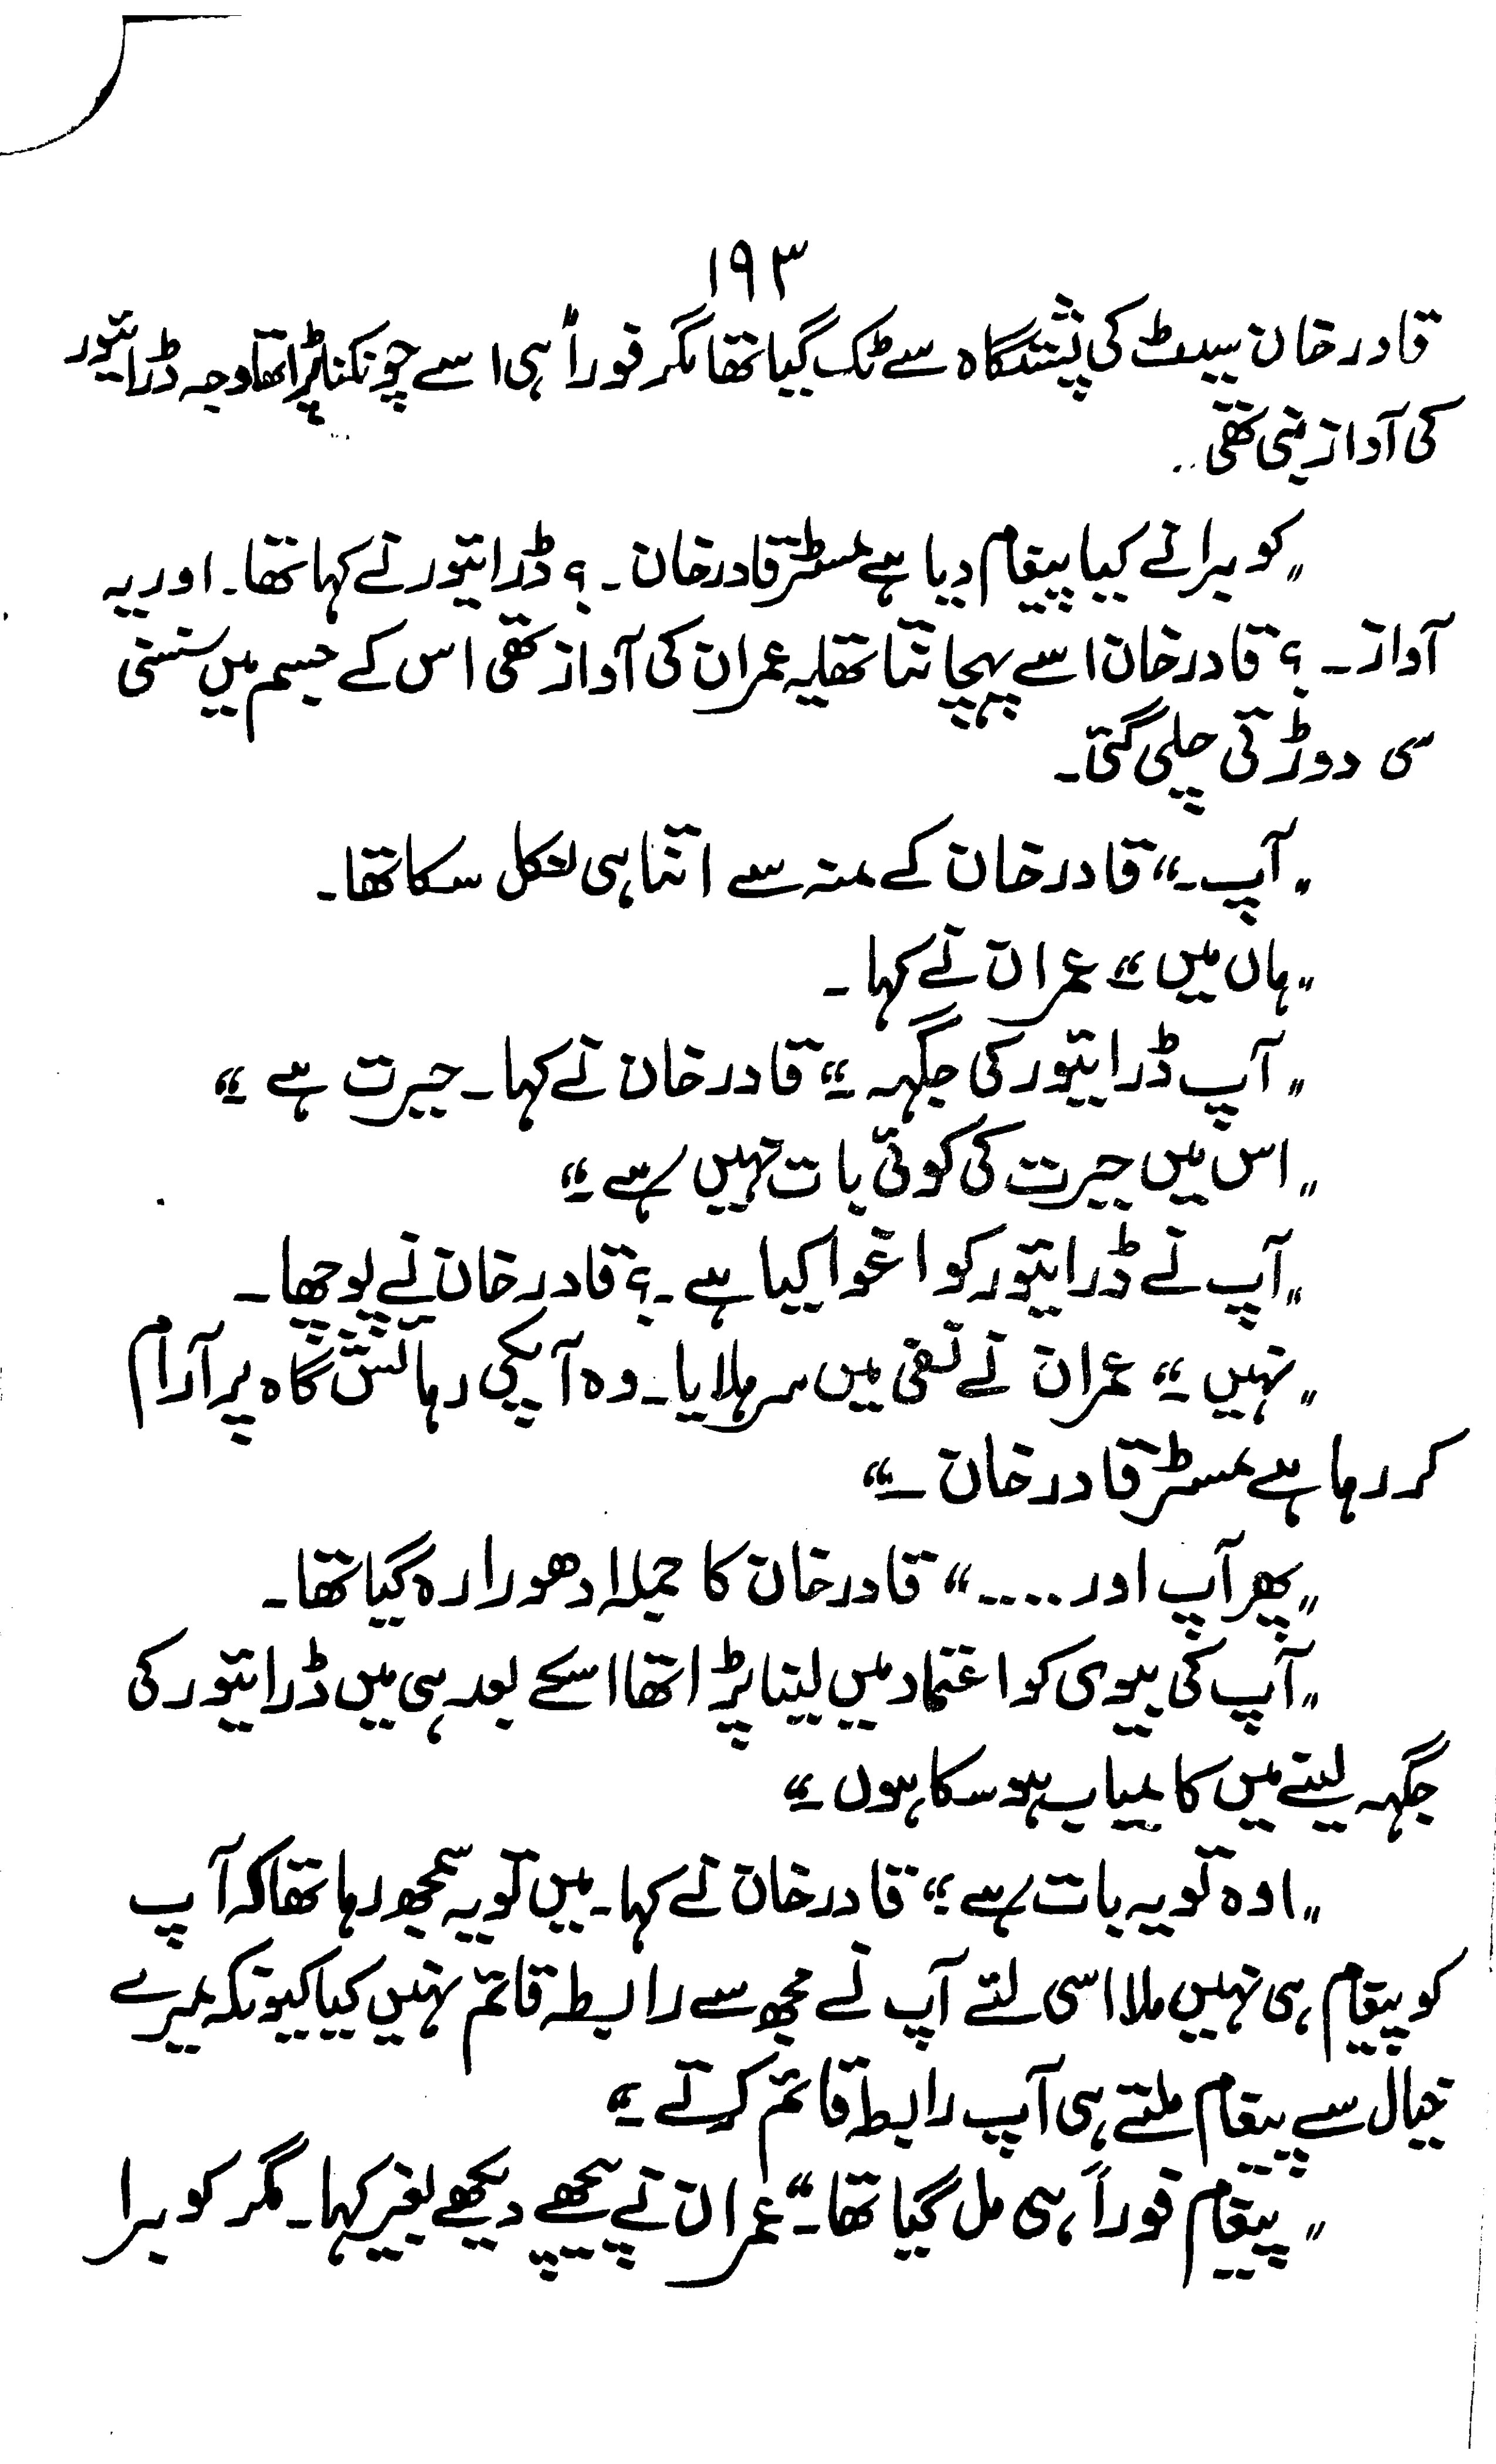 ۱۹۳
قادر خان سیٹ کی پشتگاہ سے ٹک گیا تھا مگر فوراً ہی اسے چونکنا پڑا تھا وجہ ڈرائیور
کی آواز بنی تھی۔
"کوبرا نے کیا پیغام دیا ہے مسٹر قادر خان۔؟ ڈرائیور نے کہا تھا۔ اور یہ
آواز۔؟ قادر خان اسے پہچانتا تھا یہ عمران کی آواز تھی اس کے جسم میں سنسنی
سی دوڑتی چلی گئی۔
"آپ۔" قادر خان کے منہ سے اتنا ہی نکل سکا تھا۔
"ہاں میں" عمران نے کہا۔
"آپ ڈرائیور کی جگہ۔" قادر خان نے کہا۔ حیرت ہے۔"
"اس میں حیرت کی کوئی بات نہیں ہے۔"
"آپ نے ڈرائیور کو اغوا کیا ہے۔؟ قادر خان نے پوچھا۔
"نہیں۔" عمران نے نفی میں سر ہلایا۔ وہ آپکی رہائش گاہ پر آرام
کر رہا ہے مسٹر قادر خان۔"
"پھر آپ اور ...." قادر خان کا جملہ ادھورا رہ گیا تھا۔
"آپ کی بیوی کو اعتماد میں لینا پڑا تھا اسکے بعد ہی میں ڈرائیور کی
جگہ لینے میں کامیاب ہو سکا ہوں۔"
"اوہ تو یہ بات ہے" قادر خان نے کہا۔ میں تو یہ سمجھ رہا تھا کہ آپ
کو پیغام ہی نہیں ملا اسی لئے آپ نے مجھ سے رابطہ قائم نہیں کیا کیونکہ میرے
خیال سے پیغام ملتے ہی آپ رابطہ قائم کرتے۔"
"پیغام فوراً ہی مل گیا تھا۔" عمران نے پیچھے دیکھے بغیر کہا۔ مگر کوبرا